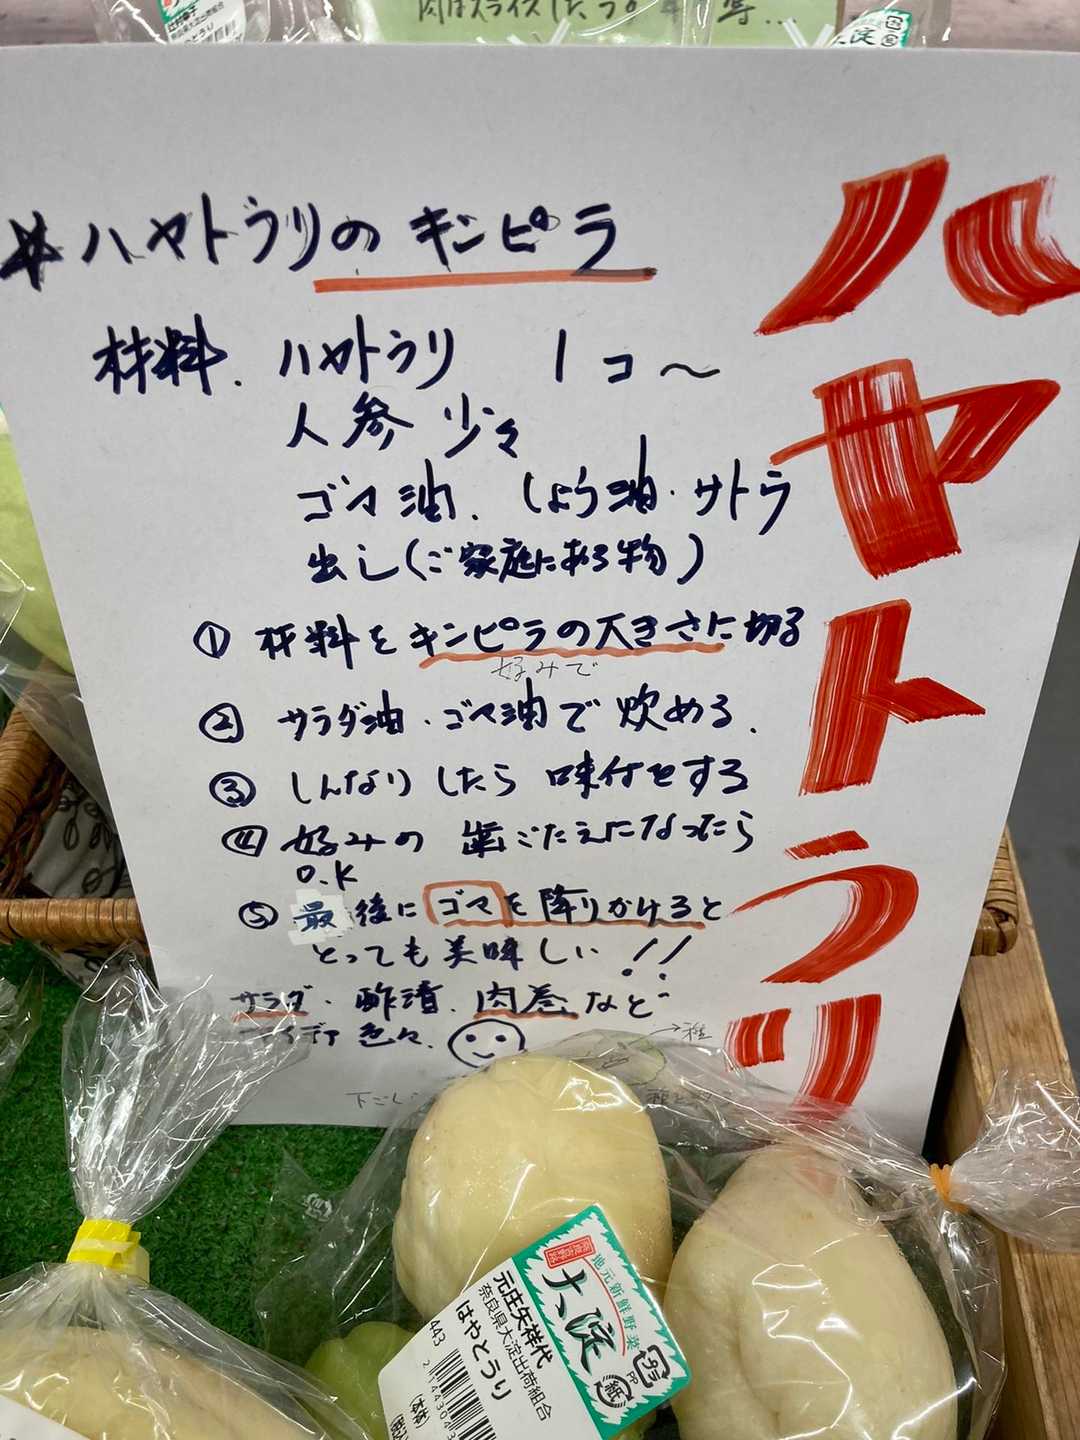 肉はスライスした
ハヤトウリ
ハヤトウリのキンピラ
材料.ハヤトウリ 1コ〜
人参 少々
ゴマ油.しょう油・サトウ
出し(ご家庭にある物)
① 材料をキンピラの大きさに切る
好みで
② サラダ油・ゴマ油で炊める.
③ しんなりしたら味付をする
④ 好みの歯ごたえになったら
O.K
⑤ 最後にゴマを降りかけると
とっても美味しい!!
サラダ・酢漬.肉巻など
アイデア色々.
種
下ごしらえ
地元新鮮野菜
大淀
プラ
PP
紙
元庄矢祥代
奈良県大淀出荷組合
はやとうり
443
(本体)